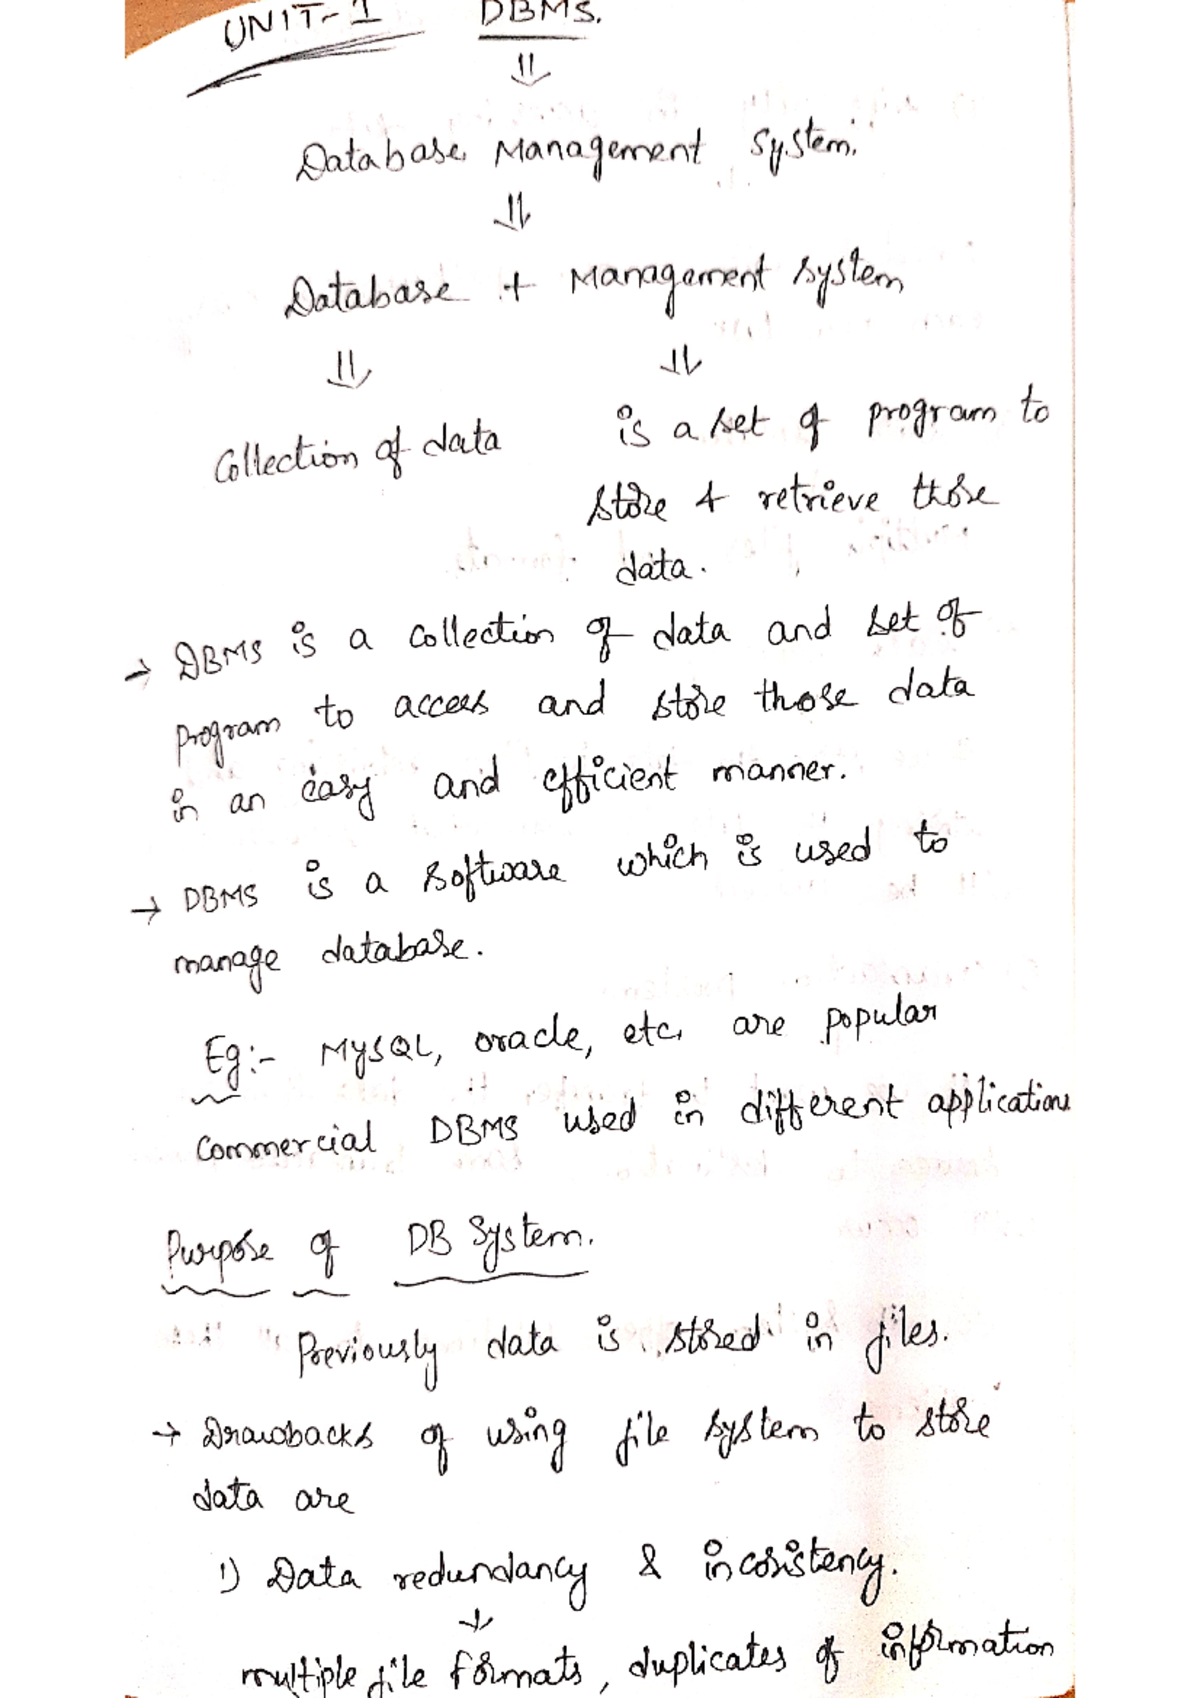 UNIT-1 DBMS.
⇓
Database Management System.
⇓
Database + Management system
⇓ ⇓
Collection of data is a set of program to
store & retrieve those
data.
→ DBMS is a collection of data and set of
program to access and store those data
in an easy and efficient manner.
→ DBMS is a software which is used to
manage database.
Eg:- MySQL, oracle, etc, are popular
commercial DBMS used in different applications
Purpose of DB System.
Previously data is stored in files.
→ Drawbacks of using file system to store
data are
1) Data redundancy & incosistency.
↓
multiple file formats, duplicates of information